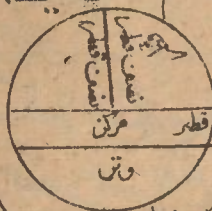 نصف قطر
نصف قطر
قطر مرکز
وتر